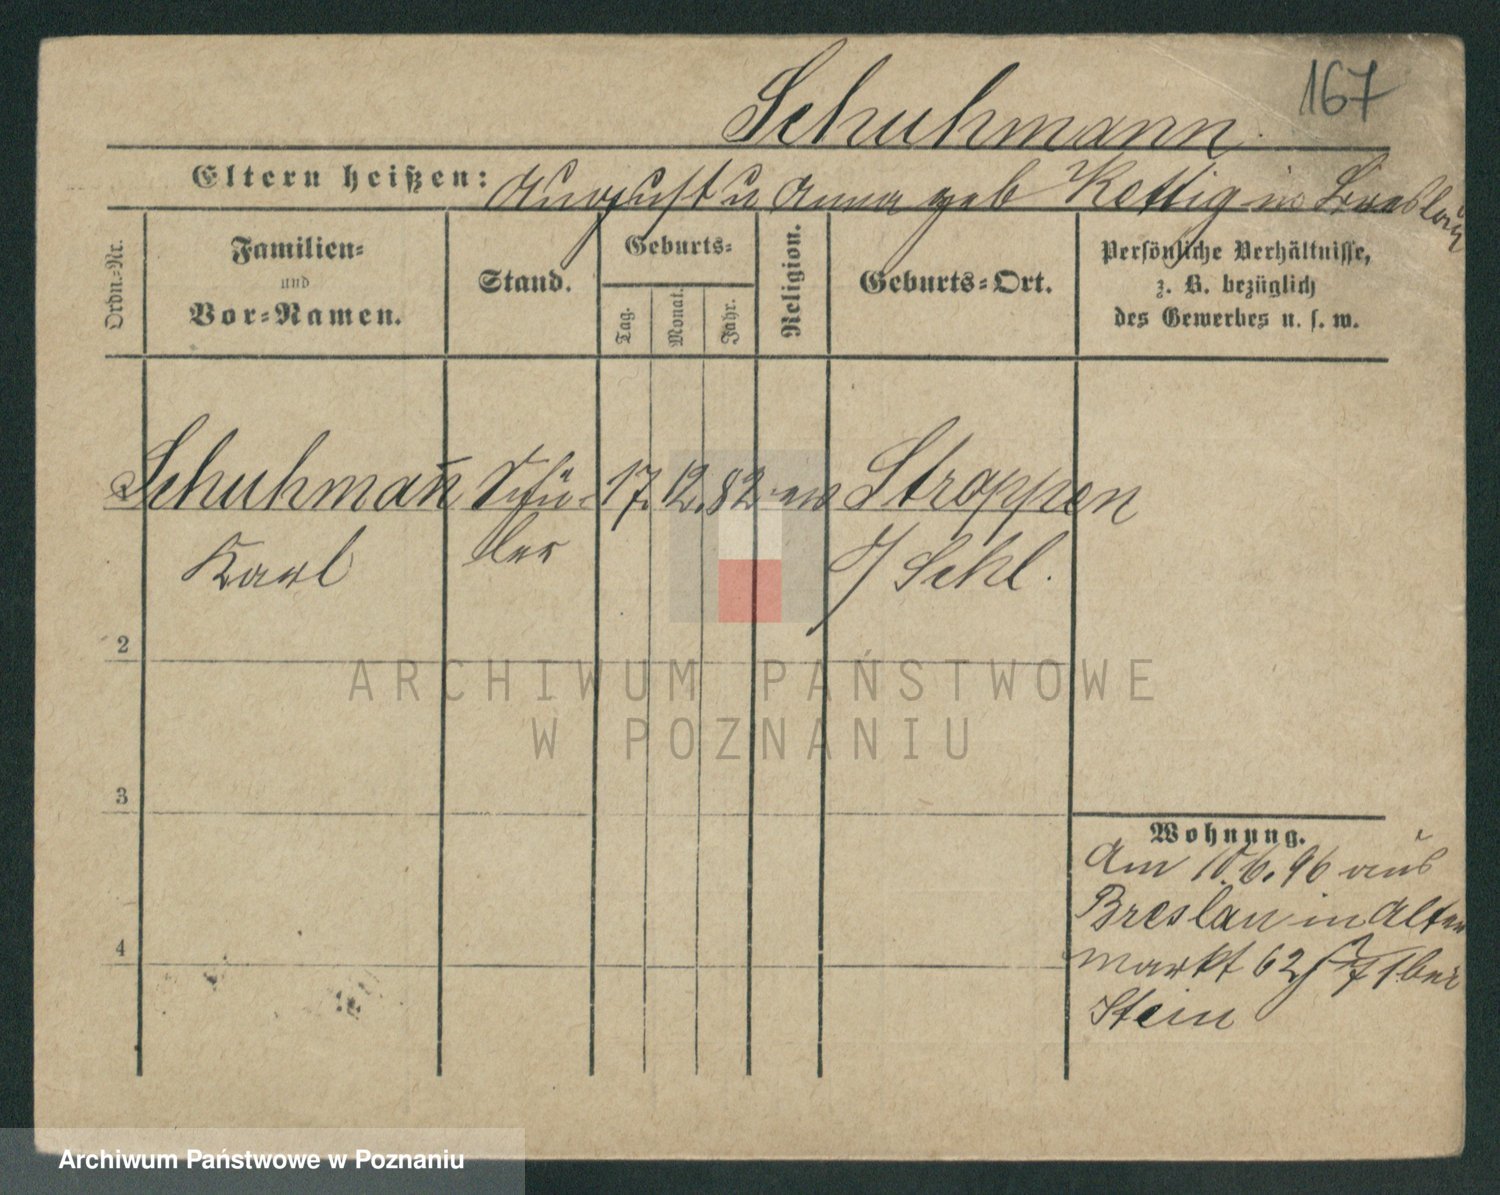 167
Schuhmann
Eltern heißen: August u Anna geb Rettig in Breslau
Ordn.-Nr.
Familien-
und
Vor-Namen.
Stand.
Geburts-
Tag.
Monat.
Jahr.
Religion.
Geburts-Ort.
Persönliche Verhältnisse,
z. B. bezüglich
des Gewerbes u. s. w.
Schuhmann̄ Schü- 17. 12. 82 ev Stroppen
Karl ler i/ Schl.
2
3
4
Wohnung.
Am 10.6.96 aus
Breslau in Alter
markt 62 bei
Stein
ARCHIWUM PAŃSTWOWE
W POZNANIU
Archiwum Państwowe w Poznaniu